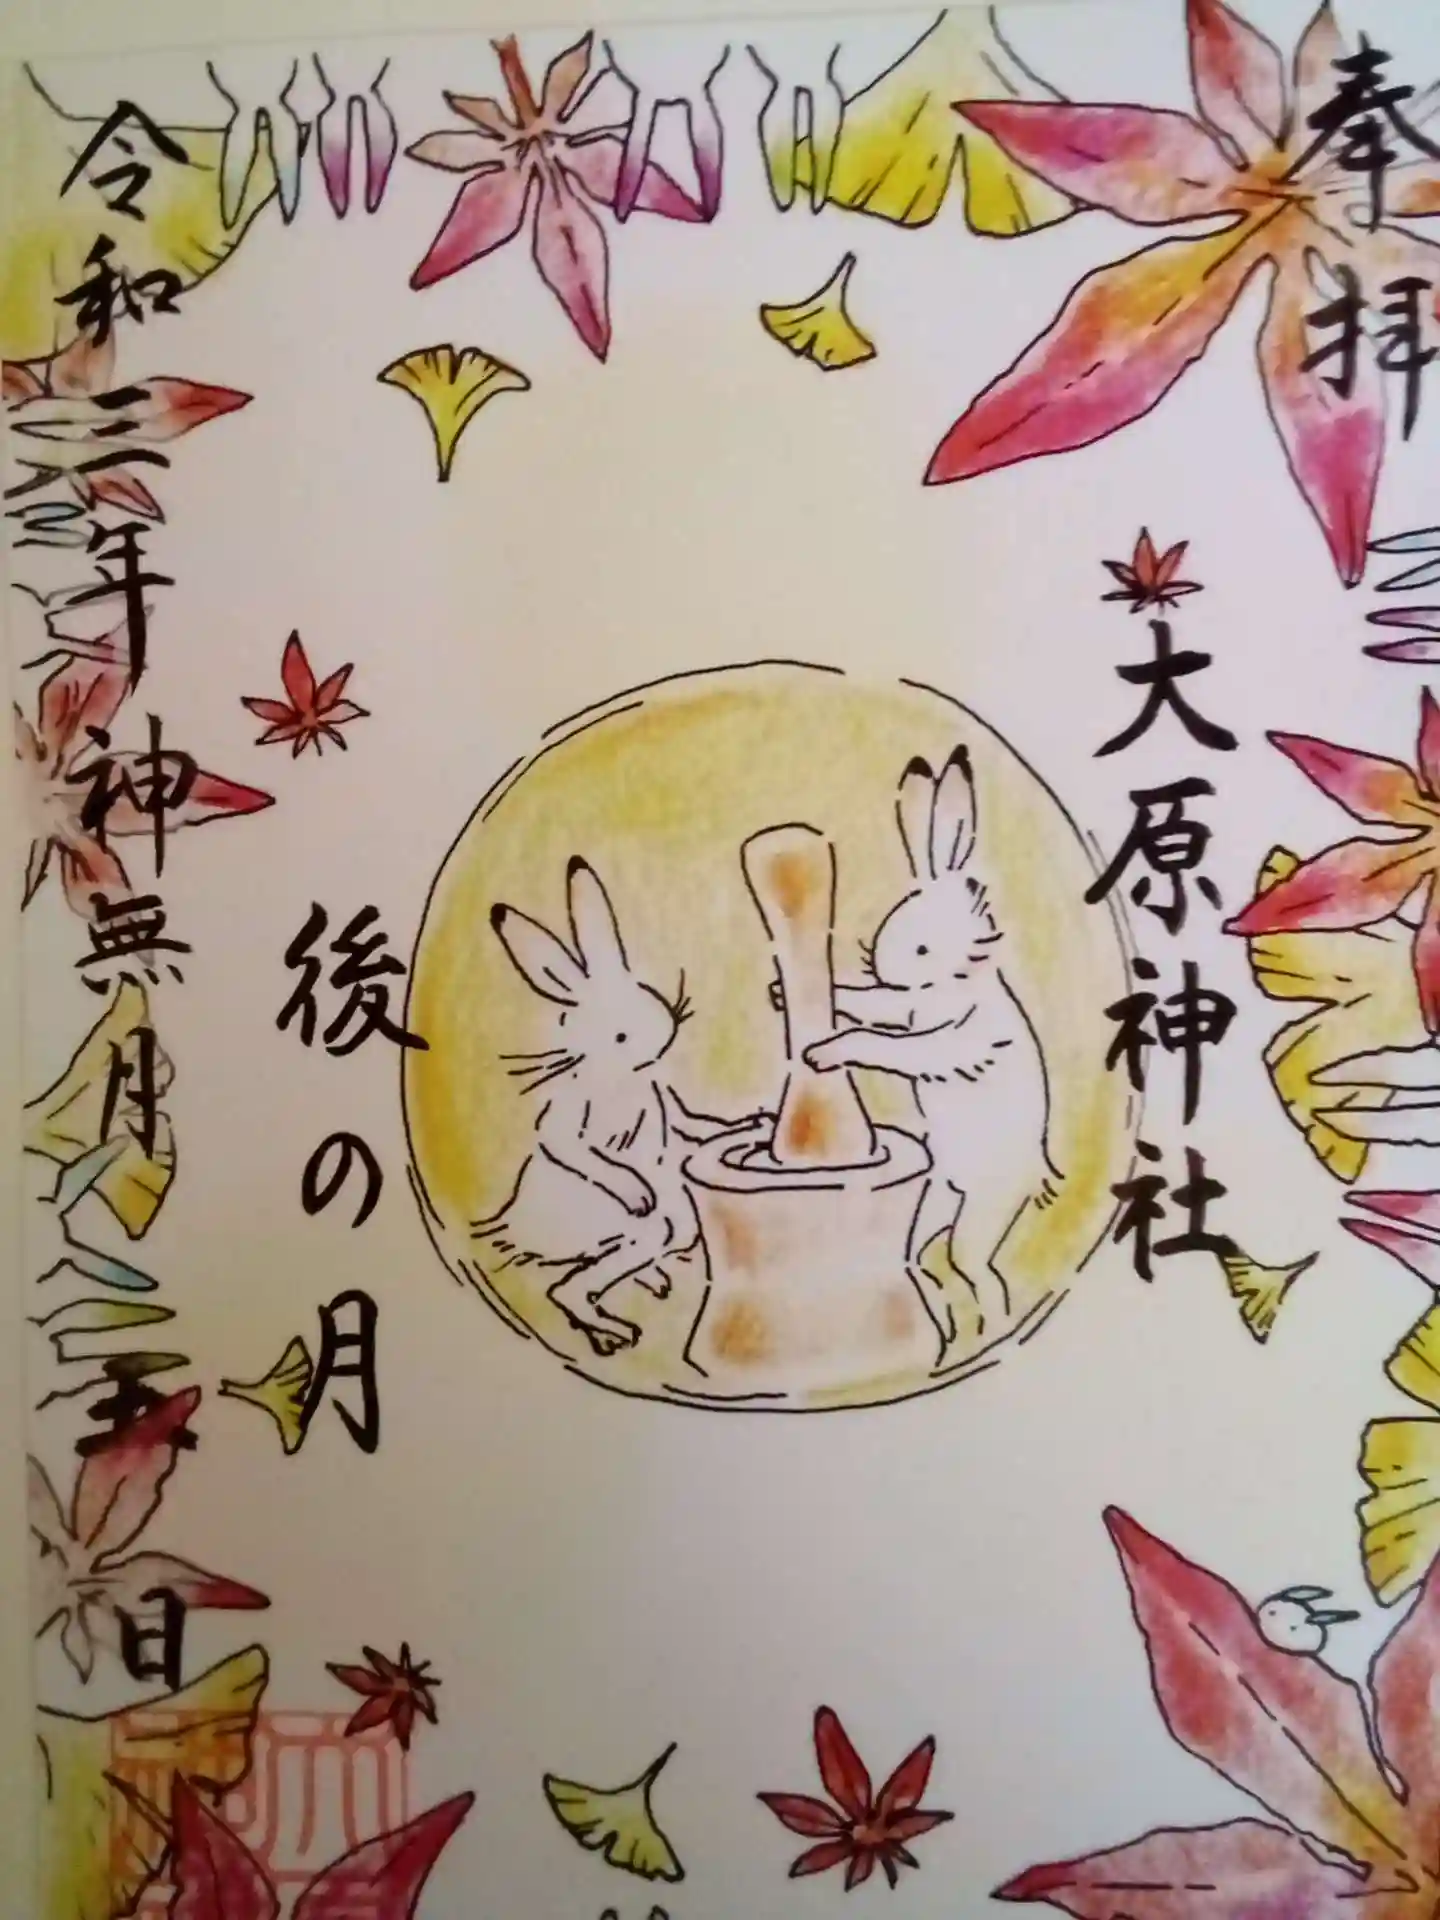 奉拝
大原神社
後の月
令和三年神無月二五日